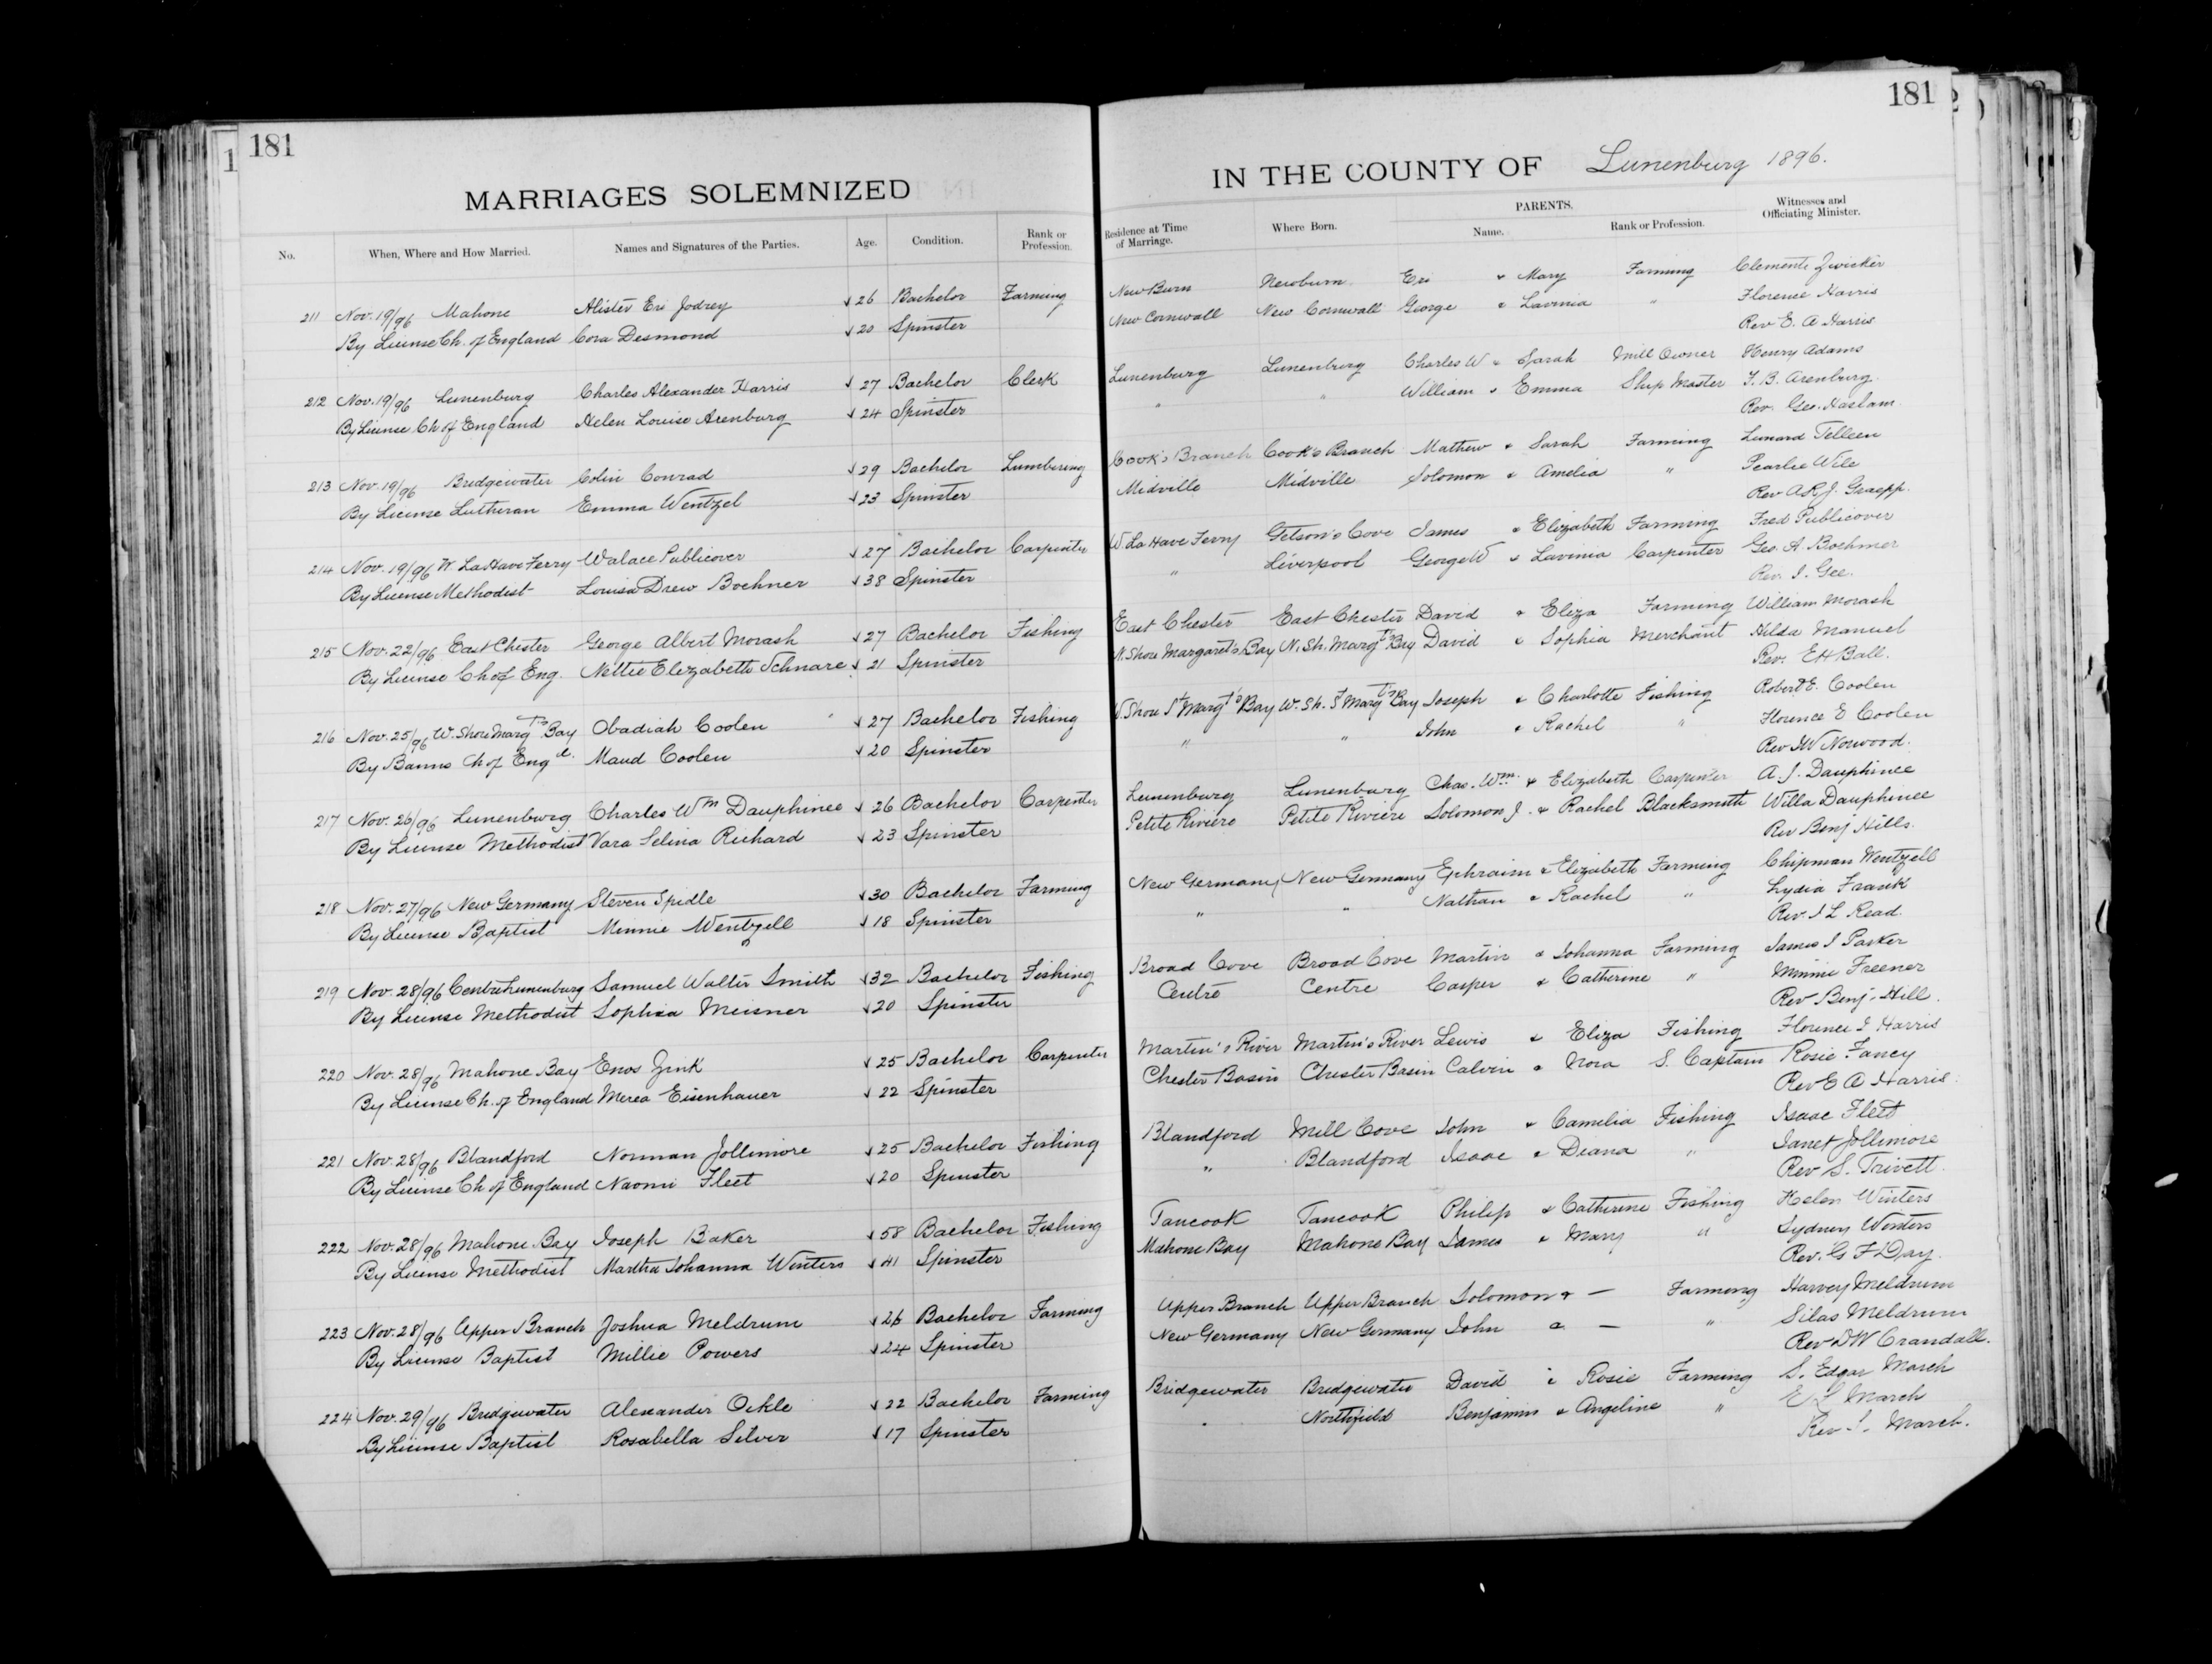 181
MARRIAGES SOLEMNIZED
No. When, Where and How Married. Names and Signatures of the Parties. Age. Condition. Rank or Profession.
211 Nov. 19/96 Mahone Alister Eri Jodrey 26 Bachelor Farming
By License Ch. of England Cora Desmond 20 Spinster
212 Nov. 19/96 Lunenburg Charles Alexander Harris 27 Bachelor Clerk
By License Ch of England Helen Louise Arenburg 24 Spinster
213 Nov. 19/96 Bridgewater Colin Conrad 29 Bachelor Lumbering
By License Lutheran Emma Wentzel 23 Spinster
214 Nov. 19/96 W LaHave Ferry Walace Publicover 27 Bachelor Carpenter
By License Methodist Louisa Drew Boehner 38 Spinster
215 Nov. 22/96 East Chester George Albert Morash 27 Bachelor Fishing
By License Ch of Eng. Nettie Elizabeth Schnare 21 Spinster
216 Nov. 25/96 W. Shore Margts Bay Obadiah Coolen 27 Bachelor Fishing
By Banns Ch of Engd. Maud Coolen 20 Spinster
217 Nov. 26/96 Lunenburg Charles Wm Dauphinee 26 Bachelor Carpenter
By License Methodist Vara Selina Richard 23 Spinster
218 Nov. 27/96 New Germany Steven Spidle 30 Bachelor Farming
By License Baptist Minnie Wentzell 18 Spinster
219 Nov. 28/96 Centre Lunenburg Samuel Walter Smith 32 Bachelor Fishing
By License Methodist Sophia Meisner 20 Spinster
220 Nov. 28/96 Mahone Bay Enos Zink 25 Bachelor Carpenter
By License Ch. of England Merea Eisenhauer 22 Spinster
221 Nov. 28/96 Blandford Norman Jollimore 25 Bachelor Fishing
By License Ch of England Naomi Fleet 20 Spinster
222 Nov. 28/96 Mahone Bay Joseph Baker 58 Bachelor Fishing
By License Methodist Martha Johanna Winters 41 Spinster
223 Nov. 28/96 Upper Branch Joshua Meldrum 26 Bachelor Farming
By License Baptist Millie Powers 24 Spinster
224 Nov. 29/96 Bridgewater Alexander Oikle 22 Bachelor Farming
By License Baptist Rosabella Silver 17 Spinster
181
IN THE COUNTY OF Lunenburg 1896.
PARENTS.
Residence at Time of Marriage. Where Born. Name. Rank or Profession. Witnesses and Officiating Minister.
New Burn Newburn Eri & Mary Farming Clements Zwicker
New Cornwall New Cornwall George & Lavinia " Florence Harris
Rev E. A Harris
Lunenburg Lunenburg Charles W & Sarah Mill Owner Henry Adams
" " William & Emma Ship Master F. B. Arenburg
Rev. Geo. Haslam.
Cook's Branch Cook's Branch Mathew & Sarah Farming Lenard Telleen
Midville Midville Solomon & Amelia " Pearlie Wile
Rev A R J. Graepp.
W La Have Ferry Getson's Cove James & Elizabeth Farming Fred Publicover
" Liverpool George W & Lavinia Carpenter Geo. A. Boehmer
Rev. I. Gee.
East Chester East Chester David & Eliza Farming William Morash
N. Shore Margaret's Bay N. Sh. Margts Bay David & Sophia Merchant Hilda Manuel
Rev. E H Ball.
W. Shore St Margt's Bay W. Sh. St Margts Bay Joseph & Charlotte Fishing Robert E. Coolen
" " John & Rachel " Florence E Coolen
Rev J W Norwood.
Lunenburg Lunenburg Chas. Wm. & Elizabeth Carpenter A. J. Dauphinee
Petite Riviere Petite Riviere Solomon J. & Rachel Blacksmith Willa Dauphinee
Rev Benj Hills.
New Germany New Germany Ephraim & Elizabeth Farming Chipman Wentzell
" " Nathan & Rachel " Lydia Frank
Rev. I L Read.
Broad Cove Broad Cove Martin & Johanna Farming James I Parker
Centre Centre Casper & Catherine " Minnie Freener
Rev Benj. Hill.
Martin's River Martin's River Lewis & Eliza Fishing Florence I Harris
Chester Basin Chester Basin Calvin & Nora S. Captain Rosie Fancy
Rev E A Harris.
Blandford Mill Cove John & Camelia Fishing Isaac Fleet
" Blandford Isaac & Deana " Janet Jollimore
Rev S. Trivett.
Tancook Tancook Philip & Catherine Fishing Helen Winters
Mahone Bay Mahone Bay James & Mary " Sydney Winters
Rev. G F Day.
Upper Branch Upper Branch Solomon & — Farming Harvey Meldrum
New Germany New Germany John & — " Silas Meldrum
Rev D W Crandall.
Bridgewater Bridgewater David & Rosie Farming S. Edgar March
" Northfield Benjamin & Angeline " E L March
Rev S. March.